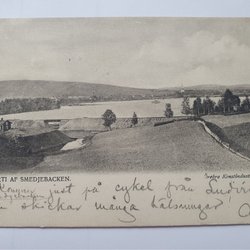 RTI AF SMEDJEBACKEN.
Svegro Konstindust
Kommer just på cykel från Ludvi
skickar många hälsningar